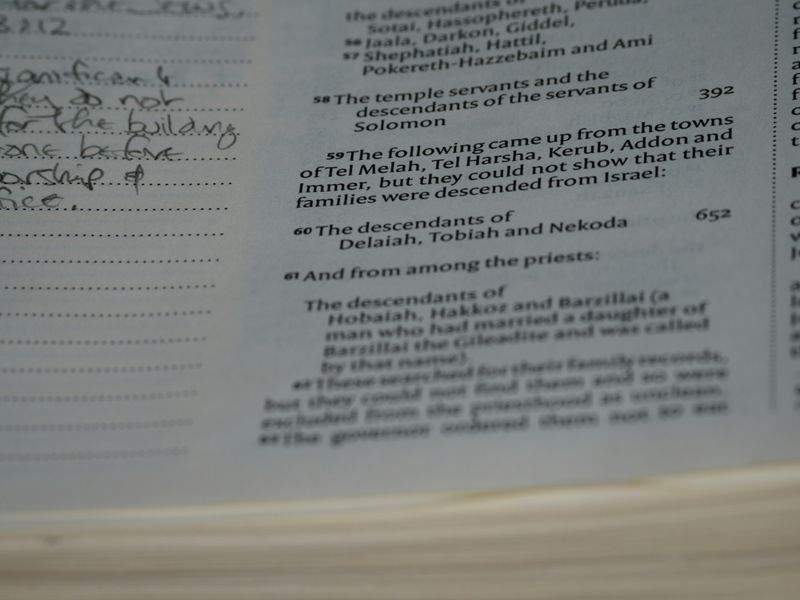 3.2.12
significant
they do not
for the building
done before
worship &
the descendants of
Sotai, Hassophereth, Peruda,
56 Jaala, Darkon, Giddel,
57 Shephatiah, Hattil,
Pokereth-Hazzebaim and Ami
58 The temple servants and the
descendants of the servants of
Solomon 392
59 The following came up from the towns
of Tel Melah, Tel Harsha, Kerub, Addon and
Immer, but they could not show that their
families were descended from Israel:
60 The descendants of
Delaiah, Tobiah and Nekoda 652
61 And from among the priests:
The descendants of
Hobaiah, Hakkoz and Barzillai (a
man who had married a daughter of
Barzillai the Gileadite and was called
by that name).
62 These searched for their family records,
but they could not find them and so were
excluded from the priesthood as unclean.
63 The governor ordered them not to eat